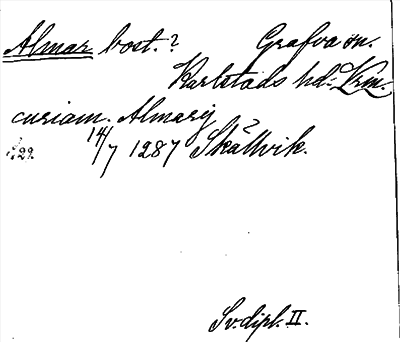 Almar bost.? Grafva sn.
Karlstads hd. Vrm.
curiam. Almarj
14/7 1287 Skällvik.
s. 29.
Sv. dipl. II.